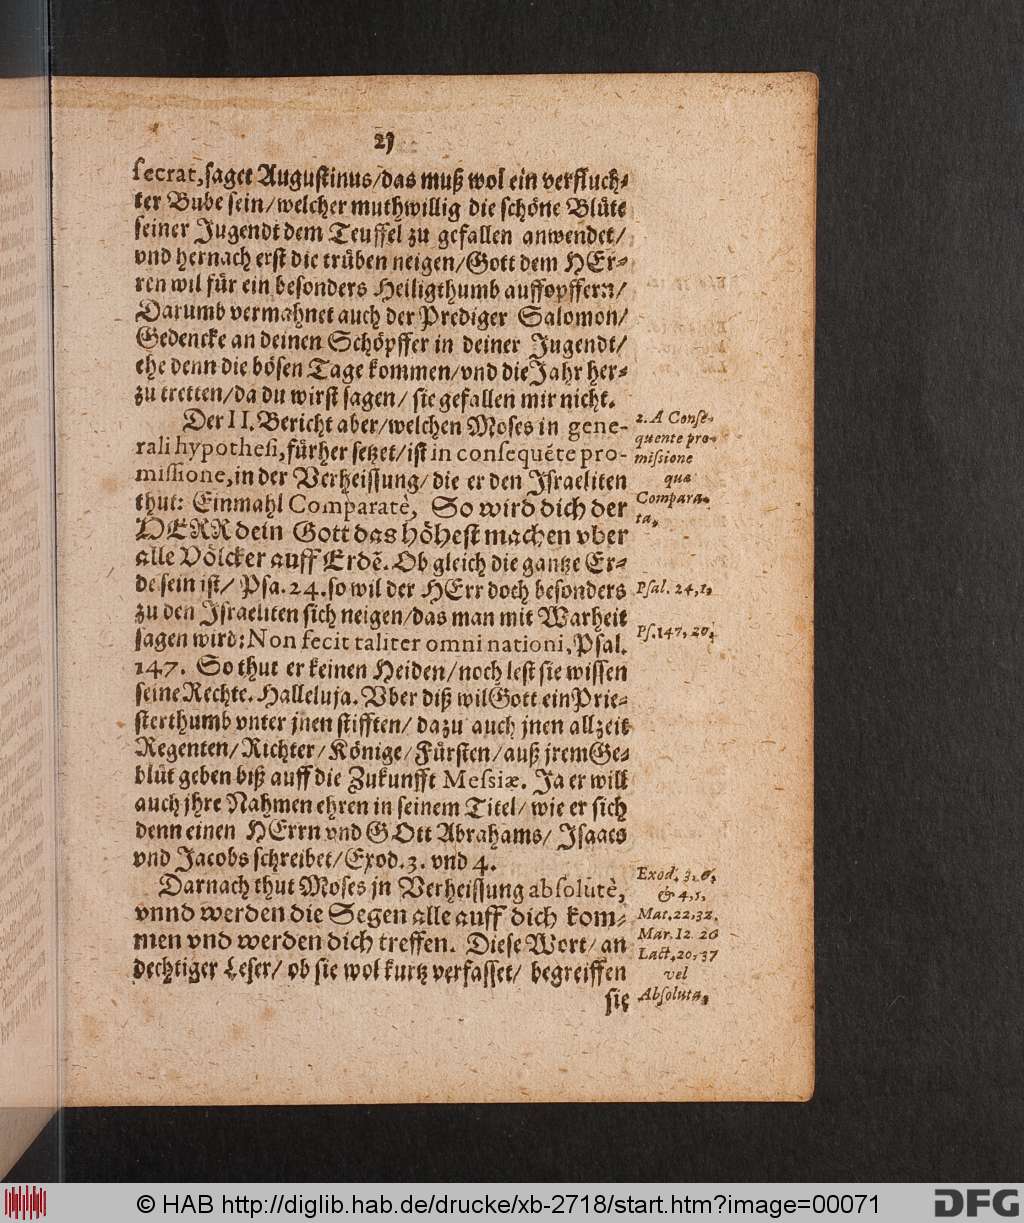 23
secrat, saget Augustinus/das muß wol ein verfluch-
ter Bube sein/welcher muthwillig die schöne Blüte
seiner Jugendt dem Teuffel zu gefallen anwendet/
vnd hernach erst die trüben neigen/Gott dem HEr-
ren wil für ein besonders Heiligthumb auffopffern/
Darumb vermahnet auch der Prediger Salomon/
Gedencke an deinen Schöpffer in deiner Jugendt/
ehe denn die bösen Tage kommen/vnd die Jahr her-
zu tretten/da du wirst sagen/ sie gefallen mir nicht.
Der II. Bericht aber/welchen Moses in gene-
rali hypothesi, fürher setzet/ist in consequẽte pro-
missione, in der Verheissung/die er den Israeliten
thut: Einmahl Comparatè, So wird dich der
HERR dein Gott das höhest machen vber
alle Völcker auff Erdẽ. Ob gleich die gantze Er-
de sein ist/ Psa. 24. so wil der HErr doch besonders
zu den Israeliten sich neigen/das man mit Warheit
sagen wird: Non fecit taliter omni nationi, Psal.
147. So thut er keinen Heiden/noch lest sie wissen
seine Rechte. Halleluja. Vber diß wil Gott ein Prie-
sterthumb vnter jnen stifften/ dazu auch jnen allzeit
Regenten/Richter/Könige/Fürsten/auß jrem Ge-
blüt geben biß auff die Zukunfft Messiæ. Ja er will
auch jhre Nahmen ehren in seinem Titel/ wie er sich
denn einen HErrn vnd GOtt Abrahams/ Isaacs
vnd Jacobs schreibet/Exod. 3. vnd 4.
Darnach thut Moses jn Verheissung absolutè,
vnnd werden die Segen alle auff dich kom-
men vnd werden dich treffen. Diese Wort/ an
dechtiger Leser/ ob sie wol kurtz verfasset/ begreiffen
sie
2. A Conse-
quente pro-
missione
quæ
Compara-
ta,
Psal. 24, 1,
Ps. 147, 20,
Exod. 3, 6,
& 4, 5,
Mat. 22, 32.
Mar. 12 26
Luct, 20, 37
vel
Absoluta,
© HAB http://diglib.hab.de/drucke/xb-2718/start.htm?image=00071
DFG